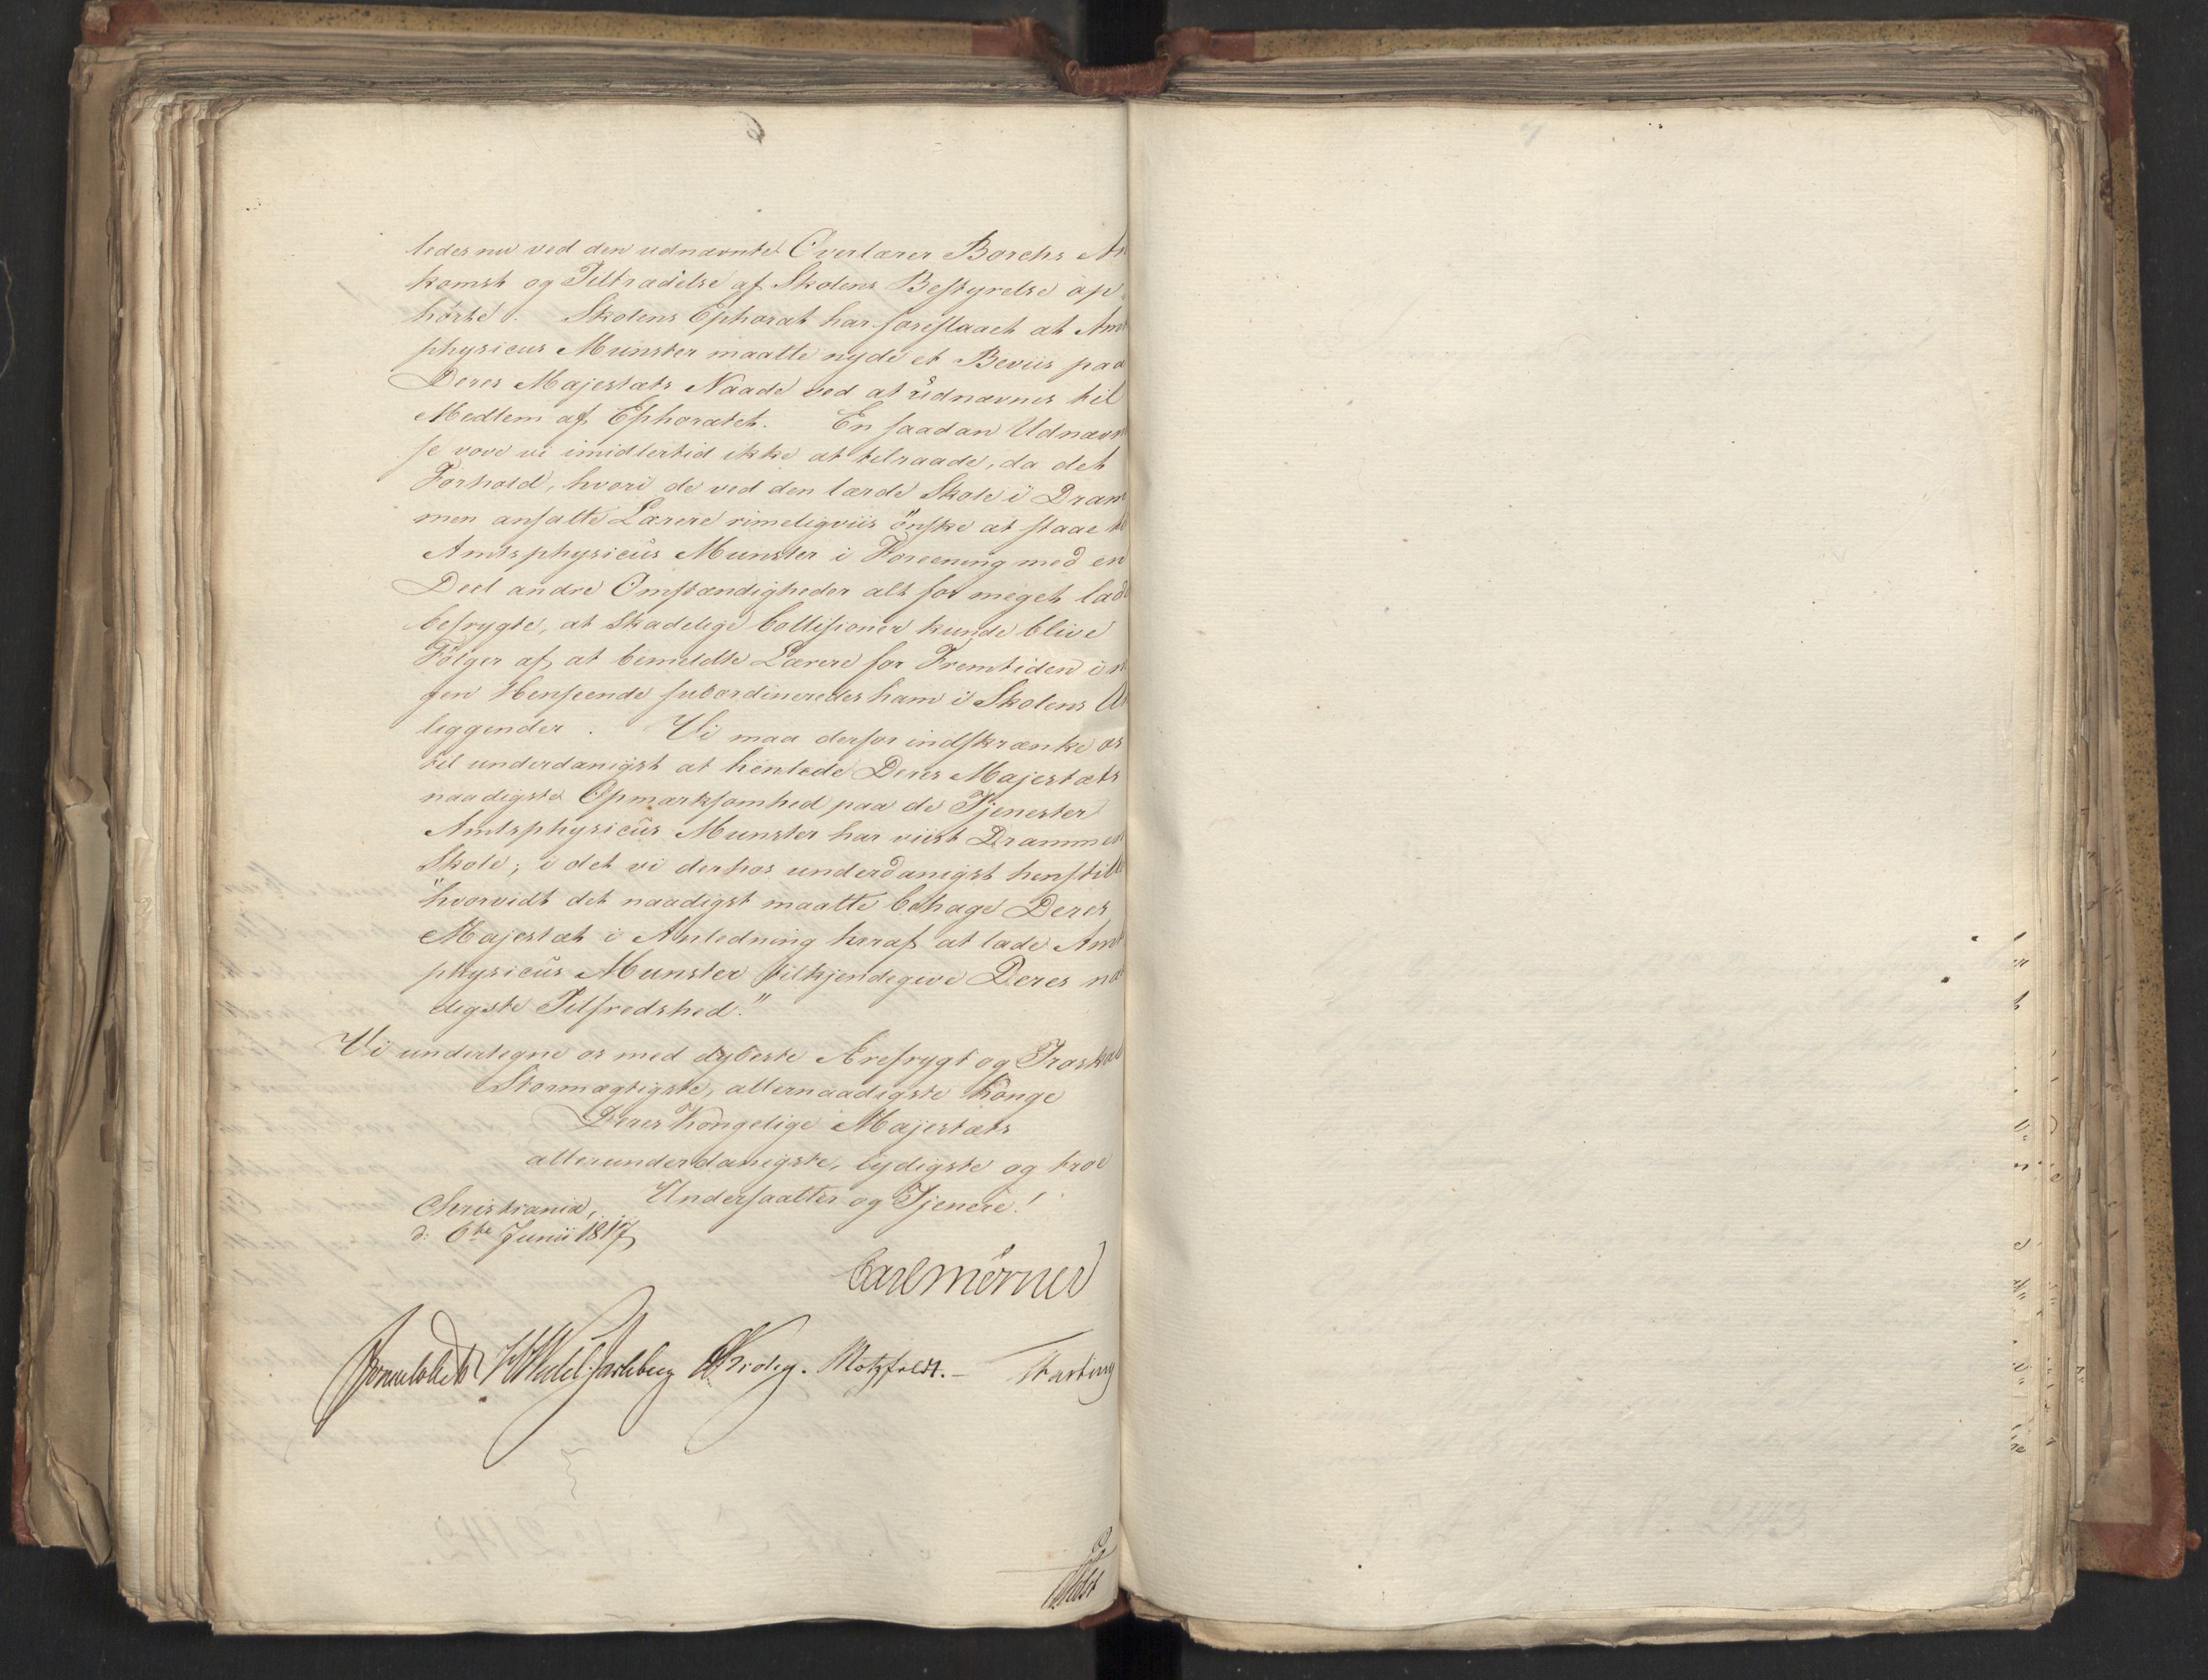 ledes nu ved den udnævnte Overlærer Borchs An
komst og Tiltrædelse af Skolens Bestyrelse op
hørte. Skolens Ephorat har foreslaaet at Amt
physicus Munster maatte nyde et Beviis paa
Deres Majestæts Naade ved at udnævnes til
Medlem af Ephoratet. En saadan Udnævn
se vove vi imidlertid ikke at tilraade, da det
Forhold, hvori de ved den lærde Skole i Dram
men ansatte Lærere rimeligviis ønske at staae til
Amtsphysicus Munster i Foreening med en
Deel andre Omstændigheder alt for meget lade
befrygte, at skadelige Collisioner kunde blive
Følger af, at bemeldte Lærere for Fremtiden i n
gen Henseende subordineredes ham i Skolens An
liggender. Vi maa derfor indskrænke os
til underdanigst at henlede Deres Majestæts
naadigste Opmærksomhed paa de Tjenester
Amtsphysicus Munster har viist Drammens
Skole; i det vi derhos underdanigst henstille
"hvorvidt det naadigst maatte behage Deres
Majestæt i Anledning heraf at lade Amt
physicus Munster tilkjendegive Deres naa
digste Tilfredshed."
Vi undertegne os med dybeste Ærefrygt og Troskab
Stormægtigste, allernaadigste Konge
Deres Kongelige Majestæts
allerunderdanigste, lydigste og troe
Undersaatter og Tjenere!
Christiania,
d: 6te Junii 1817
Carl Mörner
Sommerhielm HWedel Jarlsberg CKrohg. Motzfeldt. Hasting
Holst